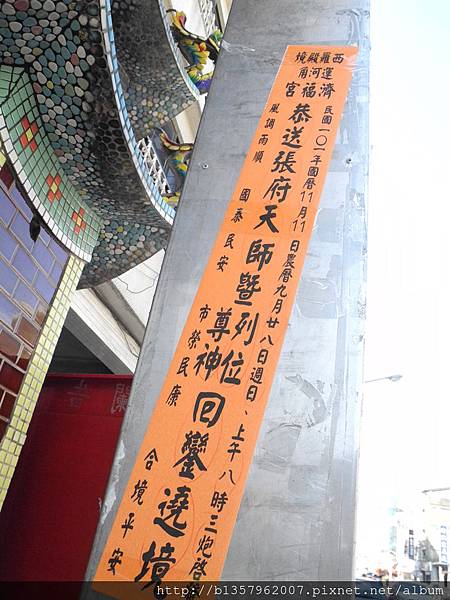 西羅殿境
蓮河角
濟福宮
民國一〇一年國曆11月11日農曆九月廿八日週日、上午八時三炮啓
恭送張府天師暨列位尊神回鑾遶境
風調雨順
國泰民安
市榮民康
合境平安
http://b1357962007.pixnet.net/album